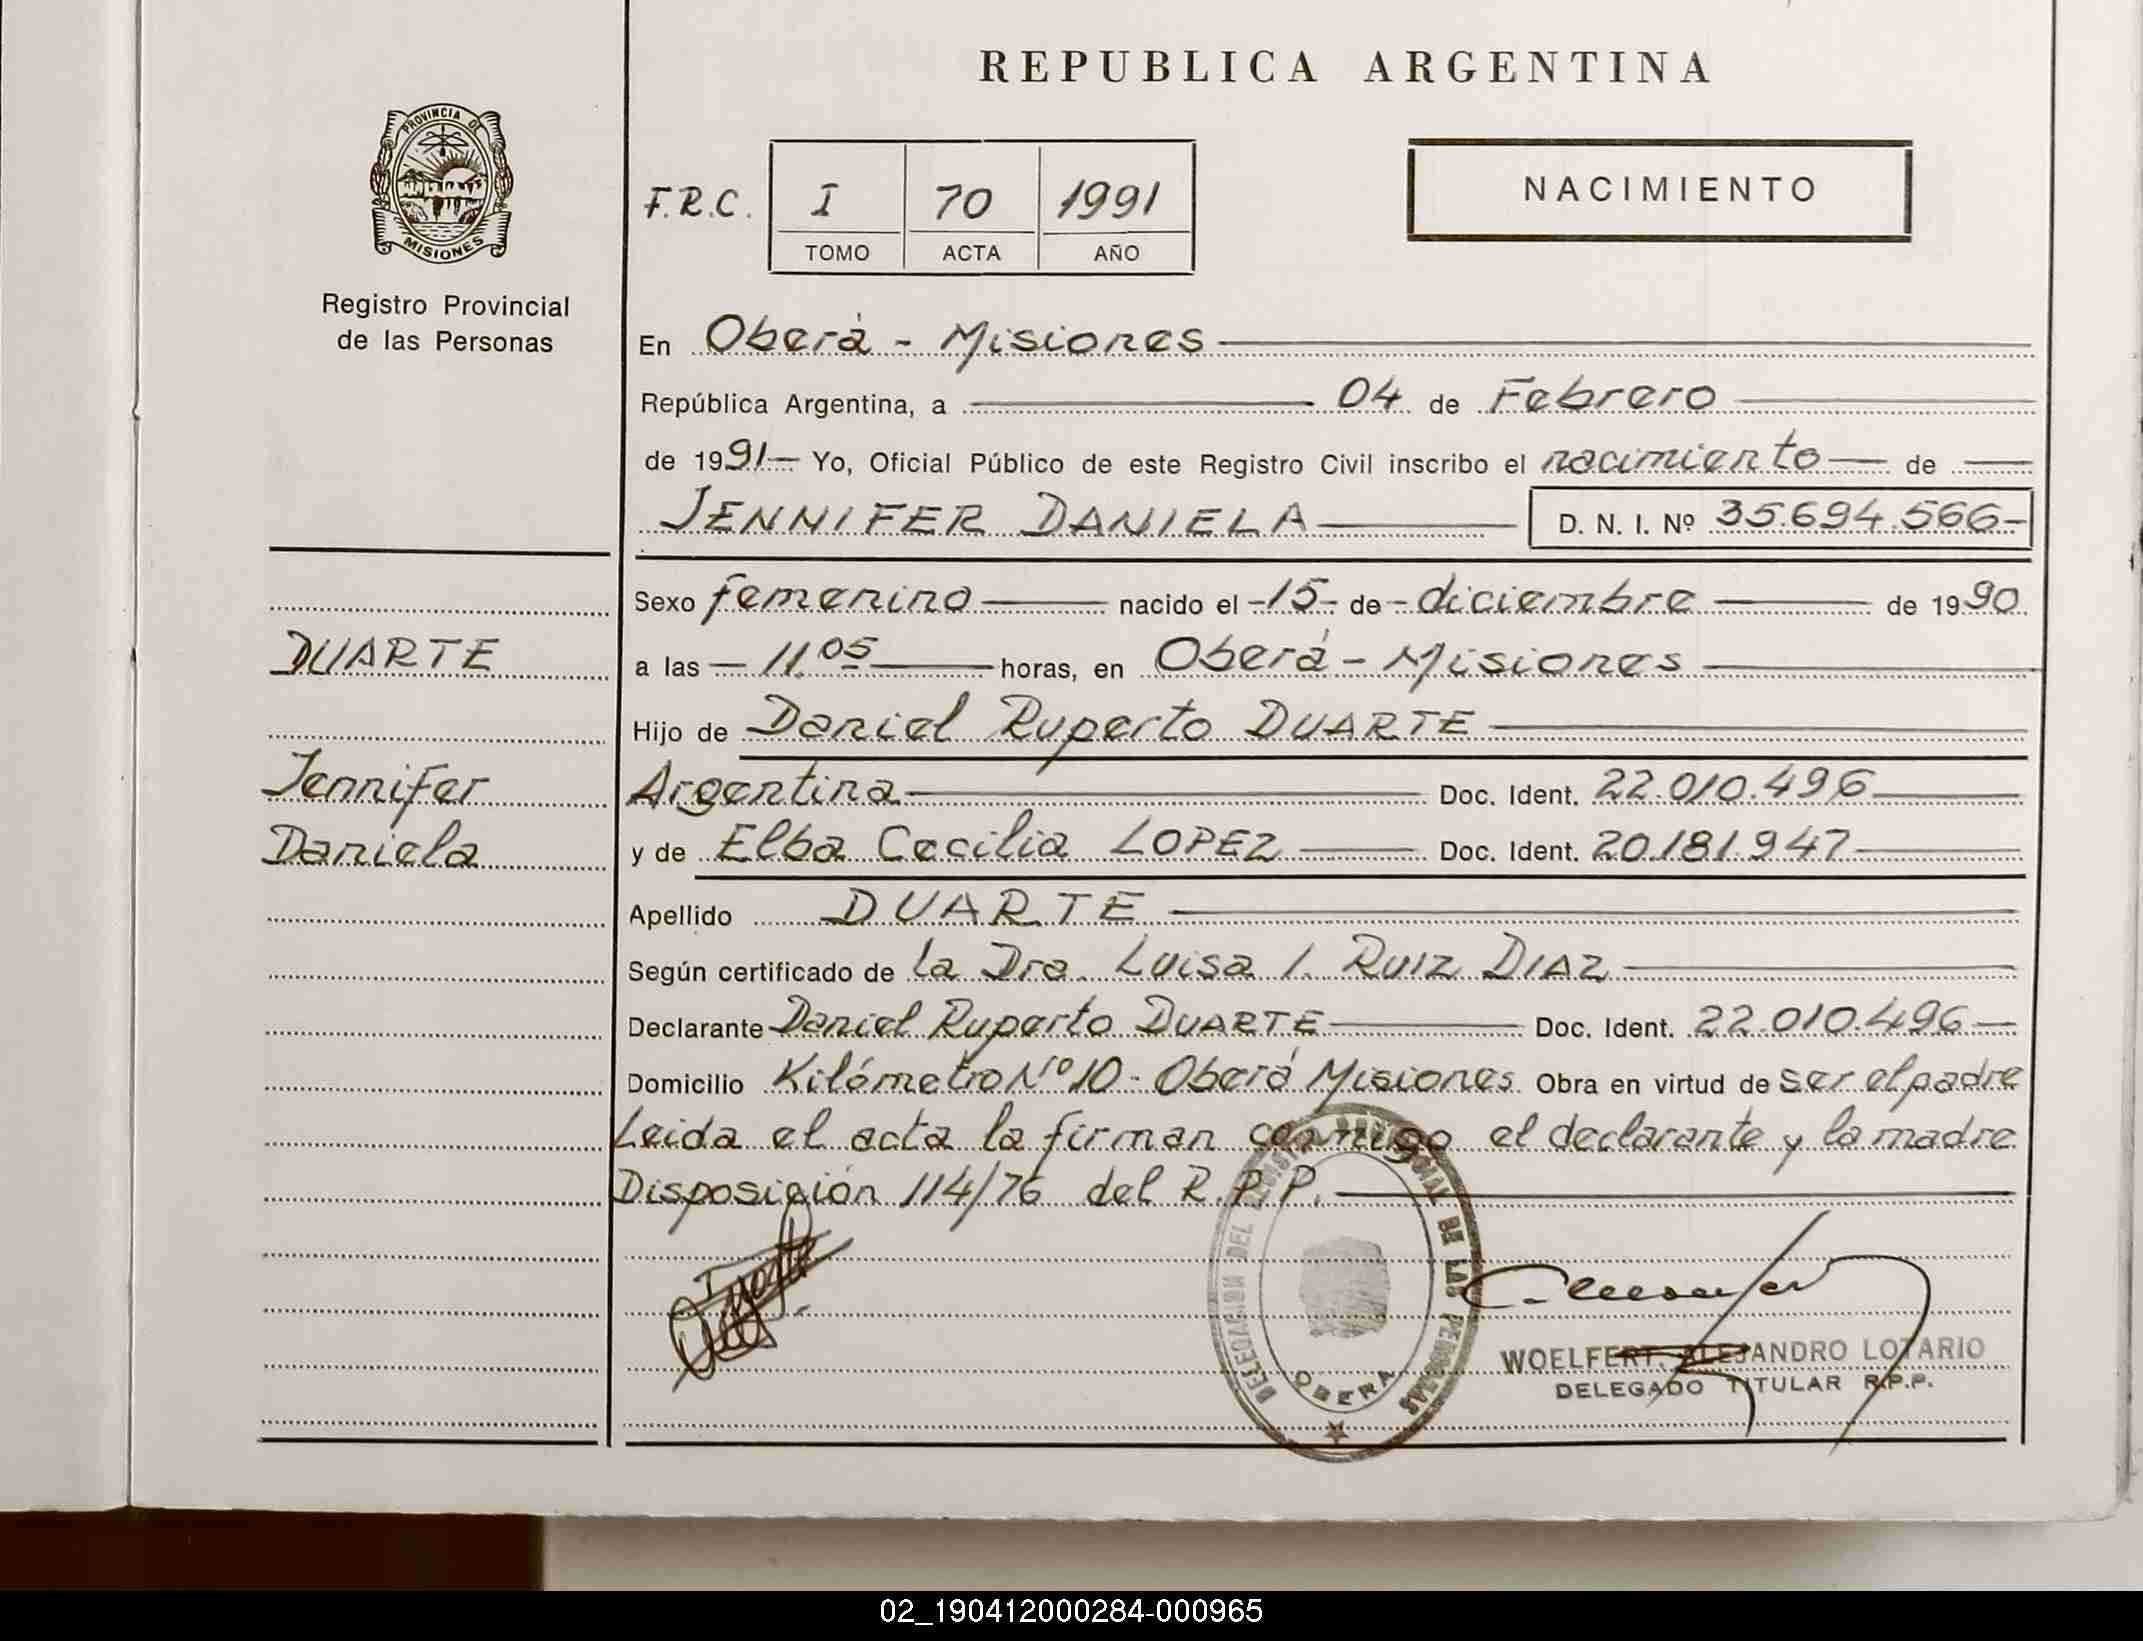 REPUBLICA ARGENTINA
PROVINCIA DE
MISIONES
Registro Provincial
de las Personas
F.R.C. I 70 1991
TOMO ACTA AÑO
NACIMIENTO
En Oberá - Misiones
República Argentina, a 04 de Febrero
de 1991 - Yo, Oficial Público de este Registro Civil inscribo el nacimiento de
JENNIFER DANIELA D. N. I. Nº 35.694.566-
Sexo femenino nacido el -15- de - diciembre de 1990
DUARTE
a las 11.05 horas, en Oberá - Misiones
Hijo de Daniel Ruperto DUARTE
Jennifer
Daniela
Argentina Doc. Ident. 22.010.496
y de Elba Cecilia LOPEZ Doc. Ident. 20.181.947
Apellido DUARTE
Según certificado de la Dra. Luisa I. RUIZ DIAZ
Declarante Daniel Ruperto DUARTE Doc. Ident. 22.010.496
Domicilio Kilómetro Nº 10 - Oberá Misiones Obra en virtud de ser el padre
Leida el acta la firman conmigo el declarante y la madre
Disposición 114/76 del R.P.P.
DELEGACION DEL REGISTRO PROVINCIAL DE LAS PERSONAS
OBERA
WOELFERT, ALEJANDRO LOTARIO
DELEGADO TITULAR R.P.P.
02_190412000284-000965